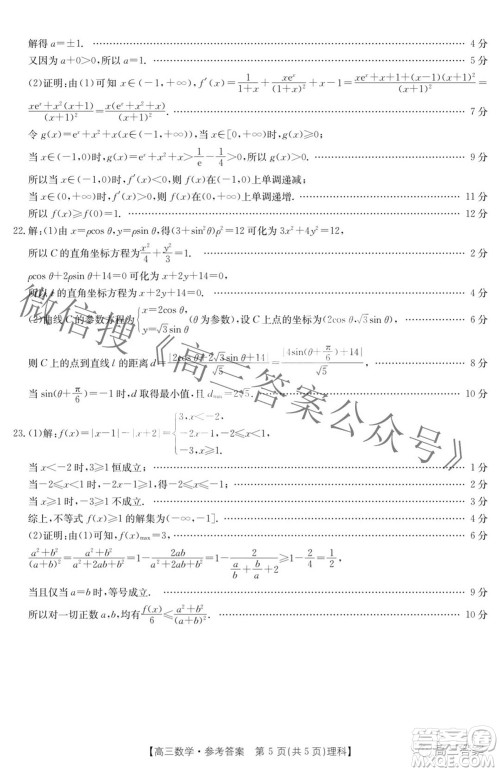 解得a=±1. 4分
又因为a>0,所以a=1. 5分
(2)证明:由(1)可知 x∈(-1,+∞),f′(x)=1/(1+x)+xeˣ/(1+x)²=(xeˣ+x+1+(x-1)(x+1)²)/(x+1)²=
(xeˣ+x²(x+1))/(x+1)²=x(eˣ+x²+x)/(x+1)². 7分
令g(x)=eˣ+x²+x(x∈(-1,+∞)),
当x∈[0,+∞)时,g(x)≥0; 8分
当x∈(-1,0)时,g(x)=eˣ+x²+x>1/e-1/4>0, 9分
所以当x∈(-1,0)时,f′(x)<0,则f(x)在(-1,0)上单调递减;
当x∈(0,+∞)时,f′(x)>0,则f(x)在(0,+∞)上单调递增. 11分
所以f(x)≥f(0)=1. 12分
22.解:(1)由x=ρcos θ,y=ρsin θ,得(3+sin²θ)ρ²=12可变为3x²+4y²=12,
所以C的直角坐标方程为x²/4+y²/3=1. 2分
ρcos θ+2ρsin θ+14=0可变为x+2y+14=0,
所以l的直角坐标方程为x+2y+14=0. 4分
(2)曲线C的参数方程为{x=2cos θ, y=√3sin θ (θ为参数),设C上点的坐标为(2cos θ,√3sin θ), 5分
则C上的点到直线l的距离d=|2cos θ+2√3sin θ+14|/√5=|4sin(θ+π/6)+14|/√5, 8分
当sin(θ+π/6)=-1时,d取得最小值,且d 10分
23.(1)解:f(x)=|x-1|-|x+2|={3,x<-2, 1分
当x<-2时,3≥1恒成立; 2分
当-2≤x<1时,-2x-1≥1,解得-2≤x≤-1; 3分
综上,不等式f(x)≥1的解集为(-∞,-1]. 4分
(2)证明:由(1)可知f(x)max=3, 6分
(a²+b²)/(a+b)²=(a²+b²)/(a²+2ab+b²)=1-2ab/(a²+2ab+b²)=1-2/(a/b+b/a+2)≥1-2/4=1/2, 8分
当且仅当a=b时,等号成立. 9分
所以对一切正数a,b,均有f(x)/6≤(a²+b²)/(a+b)². 10分
微信搜《高三答案公众号》
【高三数学·参考答案 第5页(共5页)理科】